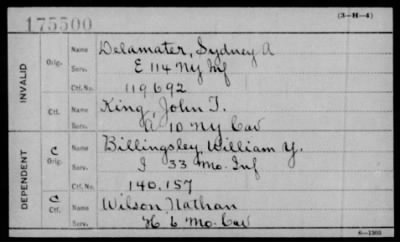 175500
(3-H-4)
INVALID
Orig.
Name Delamater, Sydney A
Serv. E 114 NY Inf
Ctf. No. 119692
Ctf.
Name King, John T.
Serv. A 10 NY Cav
DEPENDENT
C
Orig.
Name Billingsley, William Y.
Serv. I 33 Mo. Inf
Ctf. No. 140.157
C
Ctf.
Name Wilson, Nathan
Serv. H 6 Mo. Cav
6-1303